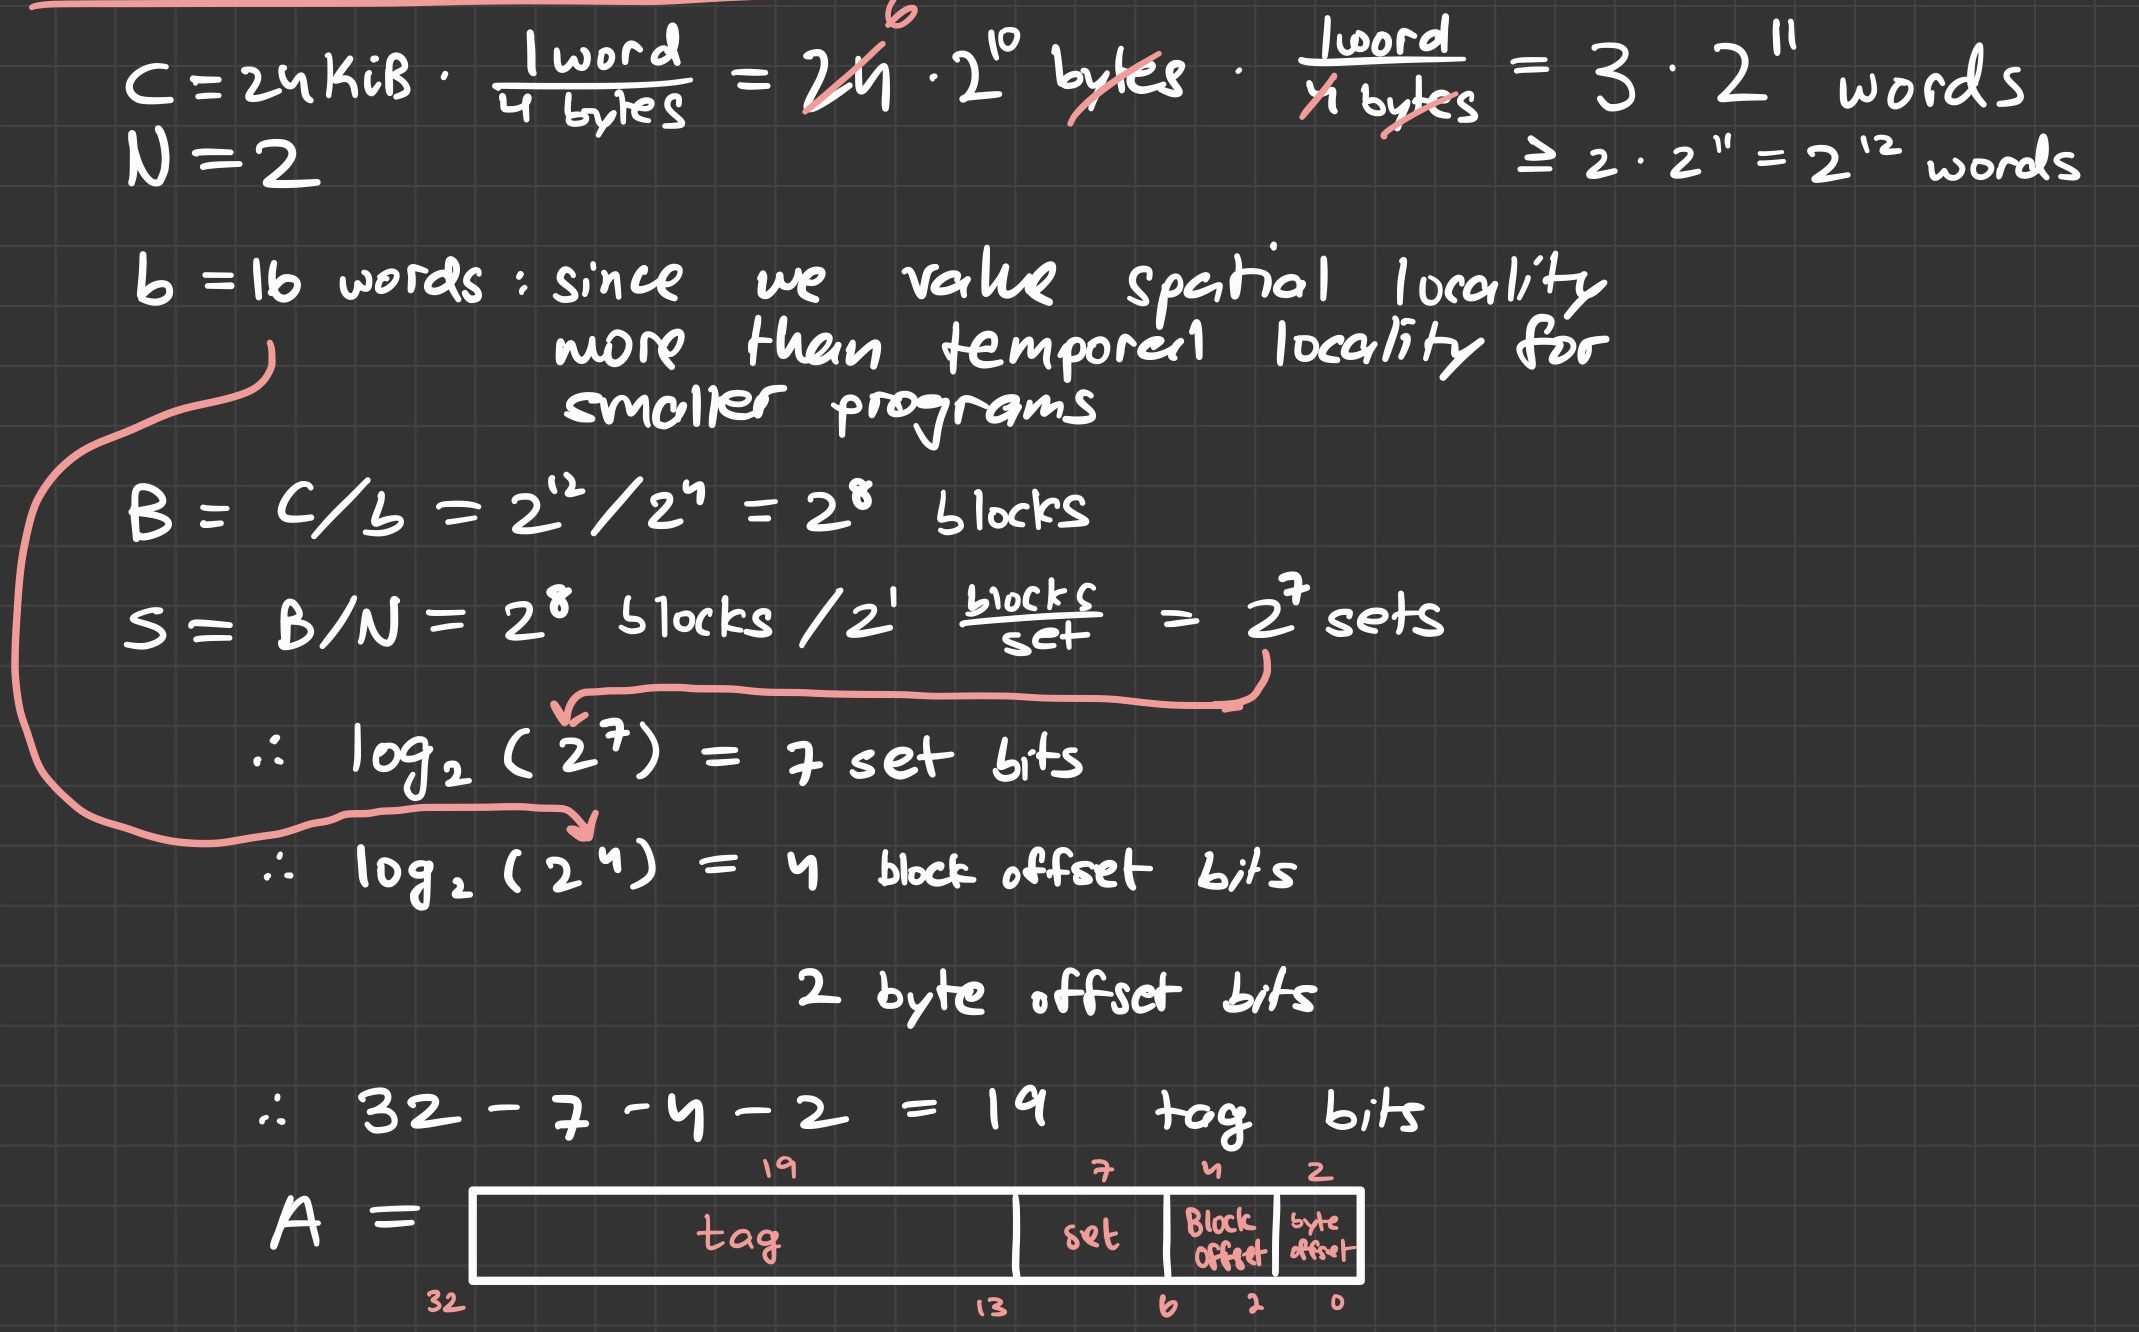 C = 24 KiB · 1 word / 4 bytes = 24 6 · 2^10 bytes · 1 word / 4 bytes = 3 · 2^11 words
N = 2 ≥ 2 · 2^11 = 2^12 words
b = 16 words : since we value spatial locality
more than temporal locality for
smaller programs
B = C/b = 2^12 / 2^4 = 2^8 blocks
S = B/N = 2^8 blocks / 2^1 blocks/set = 2^7 sets
∴ log₂ (2^7) = 7 set bits
∴ log₂ (2^4) = 4 block offset bits
2 byte offset bits
∴ 32 - 7 - 4 - 2 = 19 tag bits
19 7 4 2
A = tag set Block offset byte offset
32 13 6 2 0